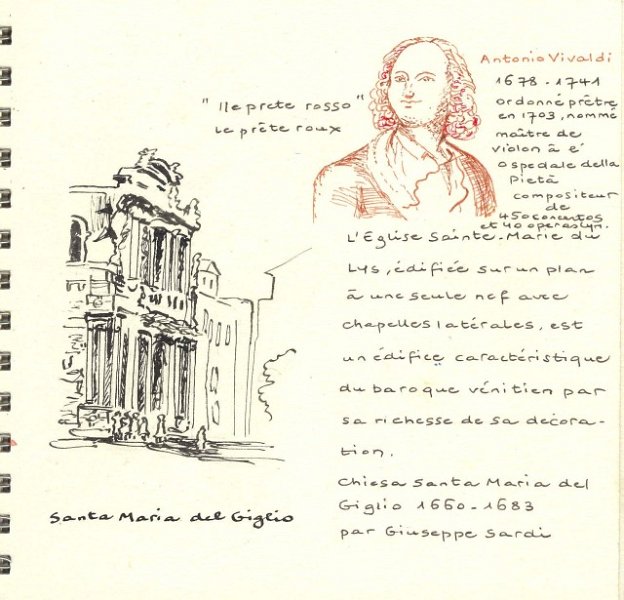 Antonio Vivaldi
1678 - 1741
ordonné prêtre
en 1703, nommé
maître de
violon à e'
Ospedale della
Pietà
compositeur
de
450 concertos
et 40 operas lyn.
" Ile prete rosso "
Le prête roux
L'Eglise Sainte-Marie du
Lys, édifiée sur un plan
à une seule nef avec
chapelles latérales, est
un édifice caractéristique
du baroque vénitien par
sa richesse de sa décora-
tion.
Chiesa Santa Maria del
Giglio 1660-1683
par Giuseppe Sardi
Santa Maria del Giglio